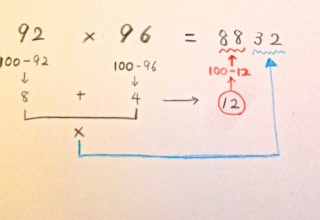 92 x 96 = 8832
100-92 100-96 100-12
8 + 4 → 12
x